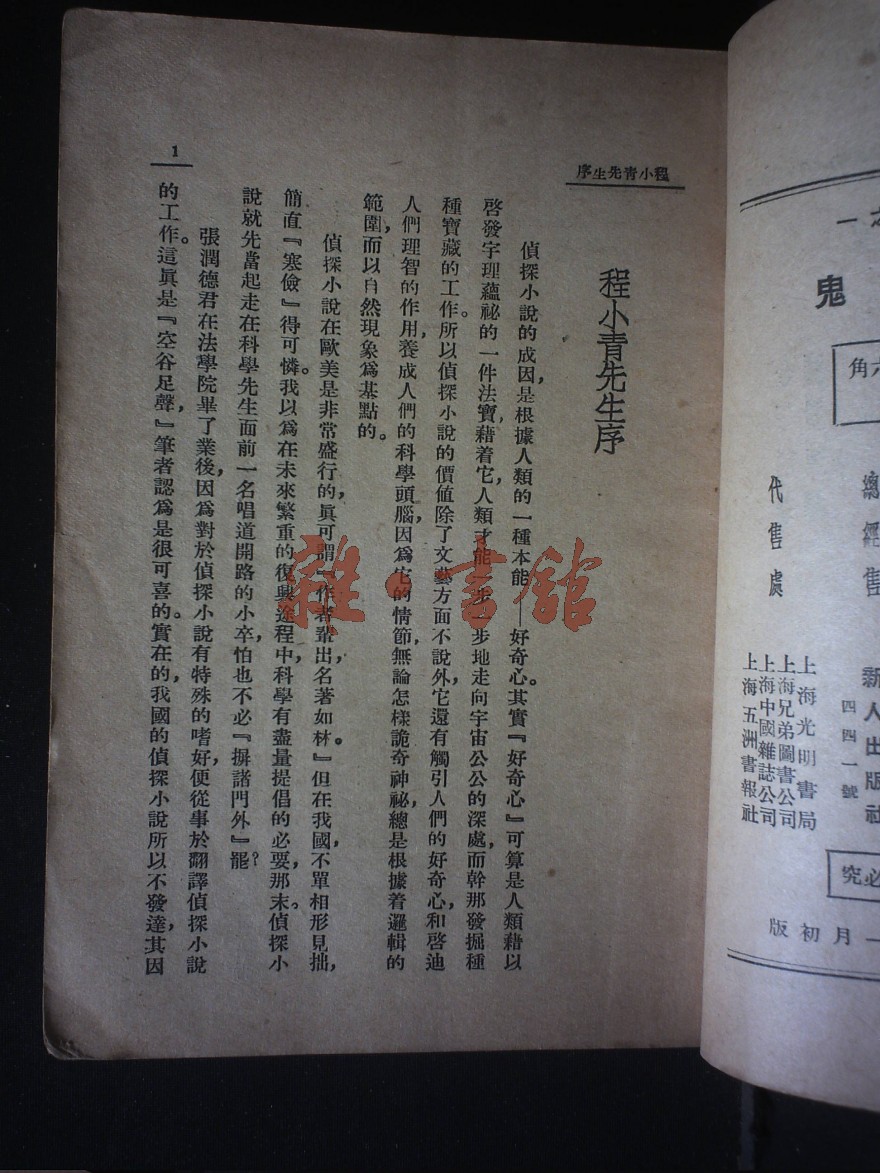 程小青先生序
程小青先生序
偵探小說的成因，是根據人類的一種本能——好奇心。其實『好奇心』可算是人類藉以
啓發宇理蘊祕的一件法寶，藉着它，人類才能一步一步地走向宇宙公公的深處，而幹那發掘種
種寶藏的工作。所以偵探小說的價値除了文藝方面不說外，它還有觸引人們的好奇心，和啓迪
人們理智的作用，養成人們的科學頭腦，因爲它的情節，無論怎樣詭奇神祕，總是根據着邏輯的
範圍，而以自然現象爲基點的。
偵探小說在歐美是非常盛行的，眞可謂『作者輩出，名著如林。』但在我國，不單相形見拙，
簡直『寒儉』得可憐。我以爲在未來繁重的復興途程中，科學有盡量提倡的必要，那末。偵探小
說就先當起走在科學先生面前一名唱道開路的小卒，怕也不必『摒諸門外』罷？
張潤德君在法學院畢了業後，因爲對於偵探小說有特殊的嗜好，便從事於翻譯偵探小說
的工作。這眞是『空谷足聲，』筆者認爲是很可喜的。實在的，我國的偵探小說所以不發達，其因
1
雜·書館
一
鬼
六角
總經售
代售處
新人出版社
四四一號
上海光明書局
上海兄弟圖書公司
上海中國雜誌公司
上海五洲書報社
必究
一月初版